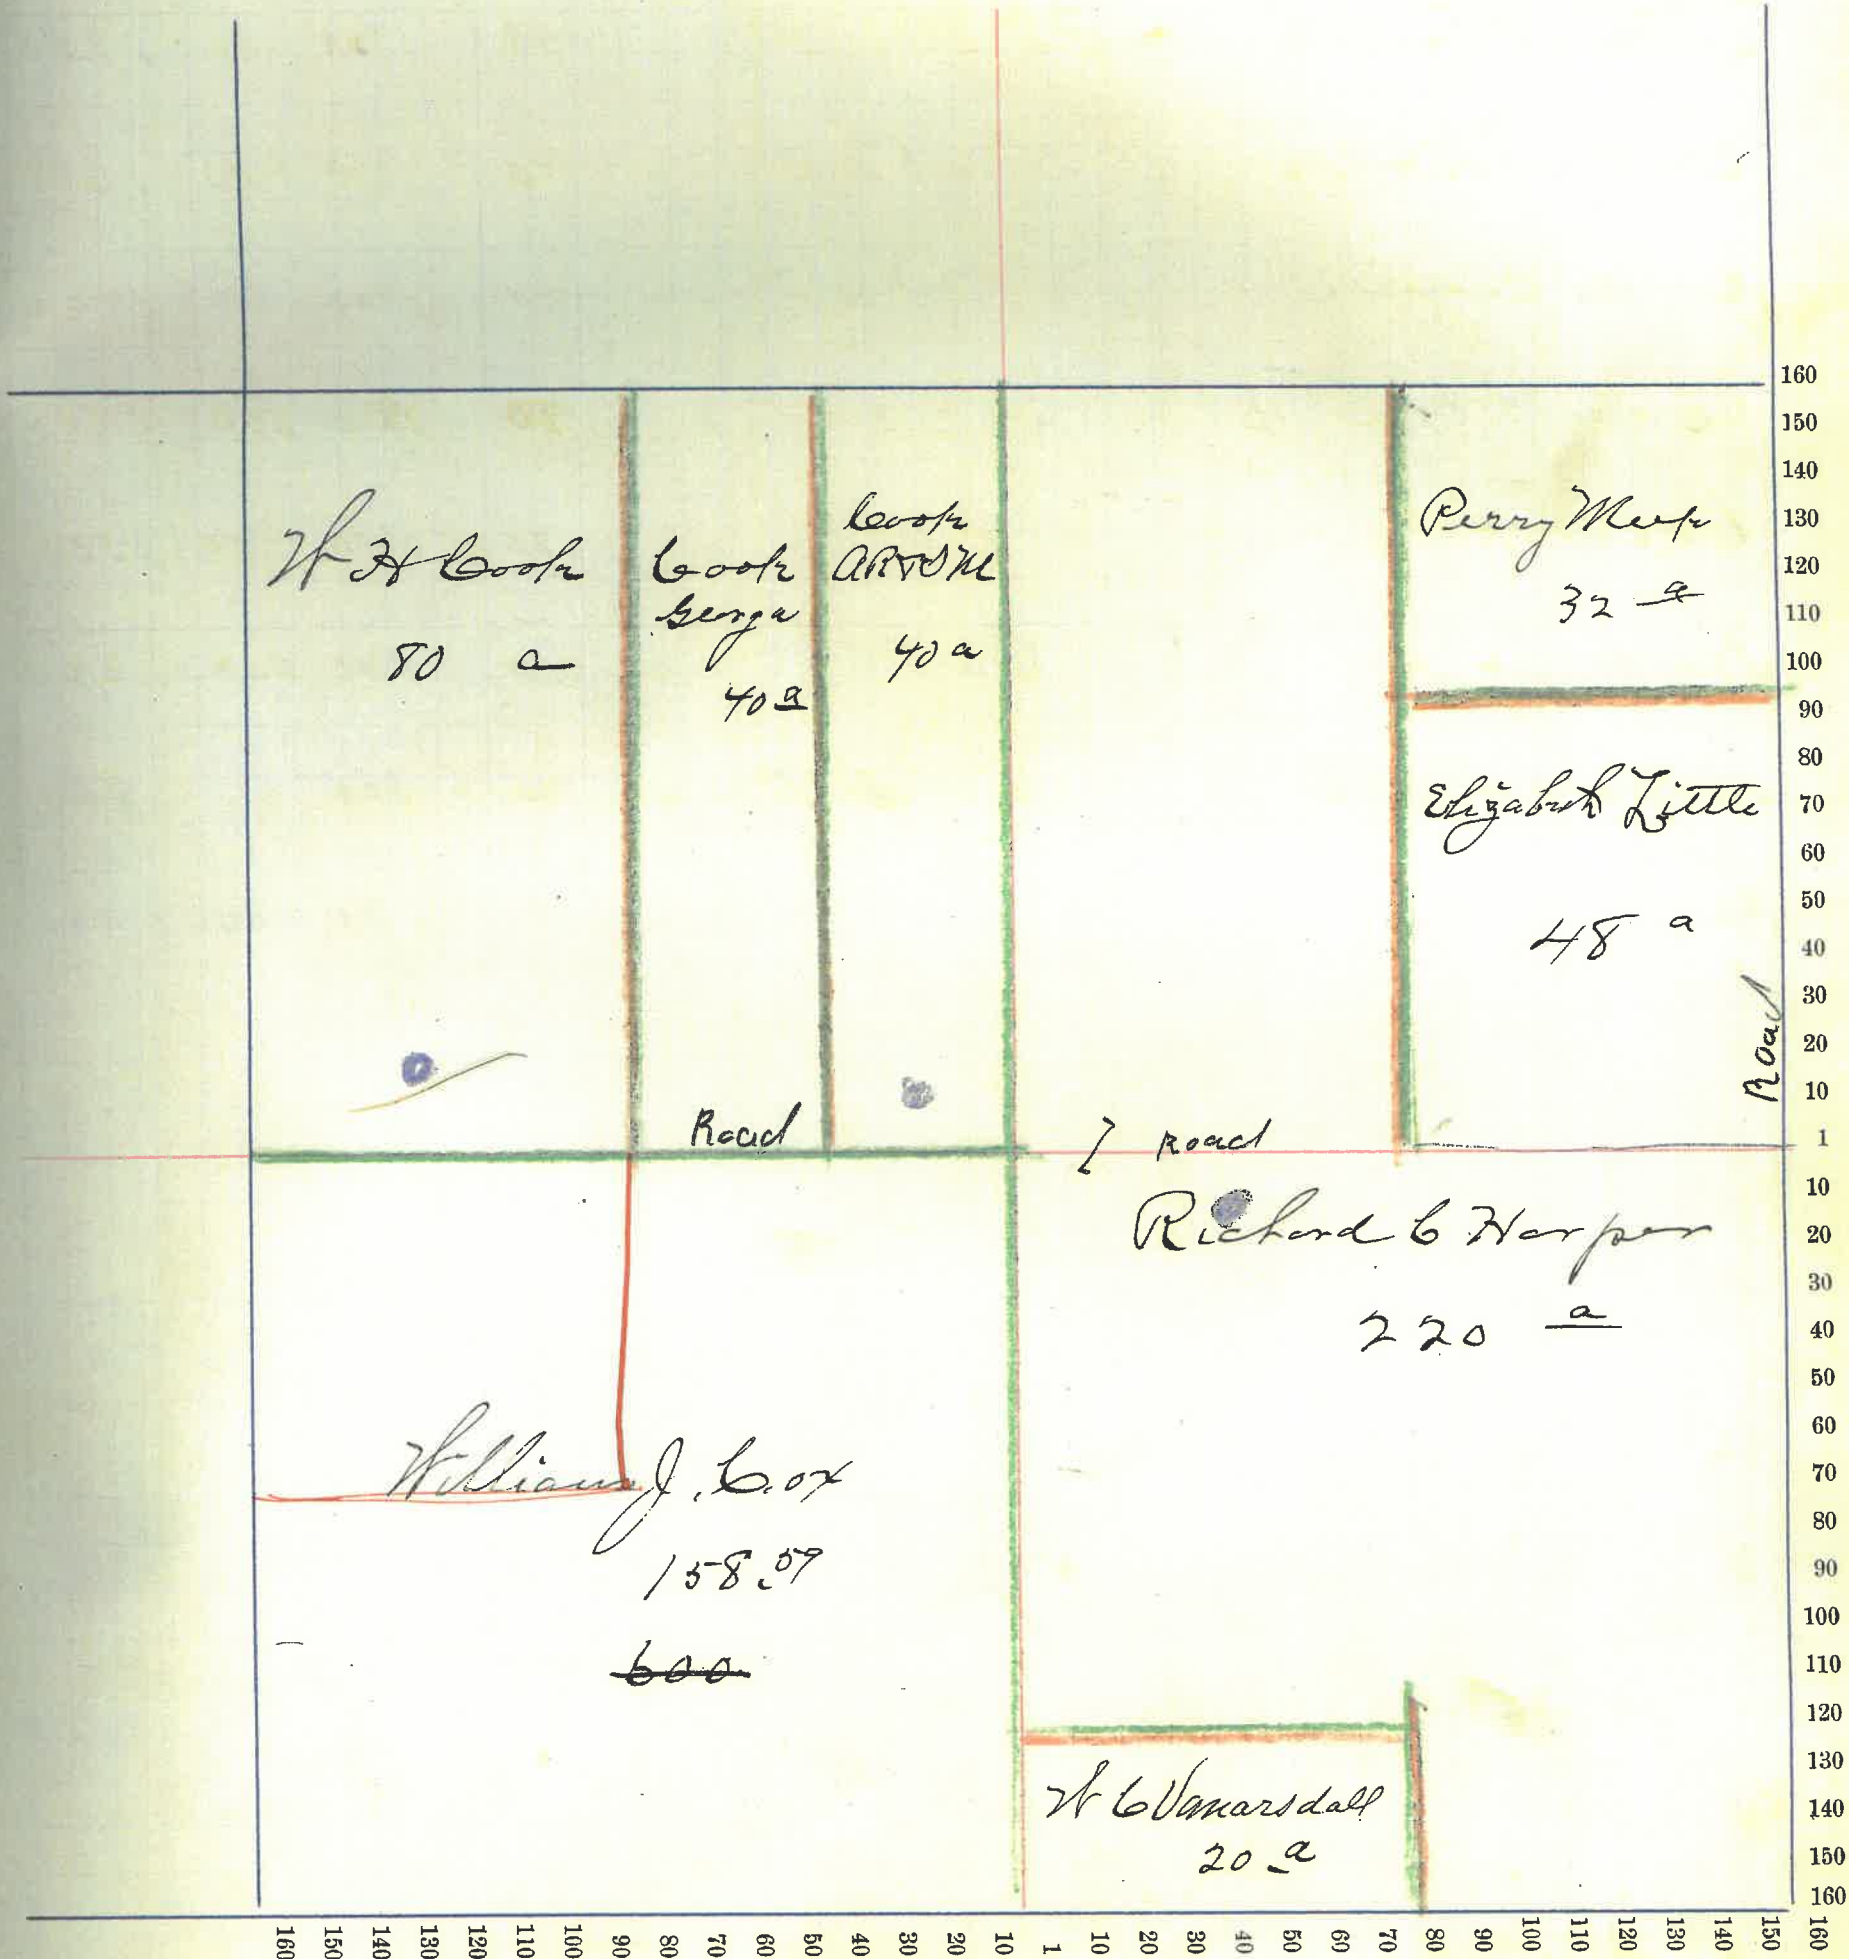 W H Cook
80 a
Cook
George
40 a
Cook
40 a
Perry Meek
32 a
Elizabeth Little
48 a
Road
Road
Road
Richard C Harper
220 a
William J. Cox
158.59
600
W C Vanarsdall
20 a
160
150
140
130
120
110
100
90
80
70
60
50
40
30
20
10
1
10
20
30
40
50
60
70
80
90
100
110
120
130
140
150
160
160 150 140 130 120 110 100 90 80 70 60 50 40 30 20 10 1 10 20 30 40 50 60 70 80 90 100 110 120 130 140 150 160